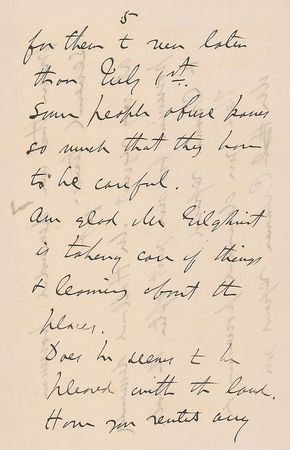 5
for them to run later
than July 1st.
Some people abuse passes
so much that they have
to be careful.
Am glad Mr Gilchrist
is taking care of things
& learning about the
places.
Does he seems to be
pleased with the land.
Have you rented any